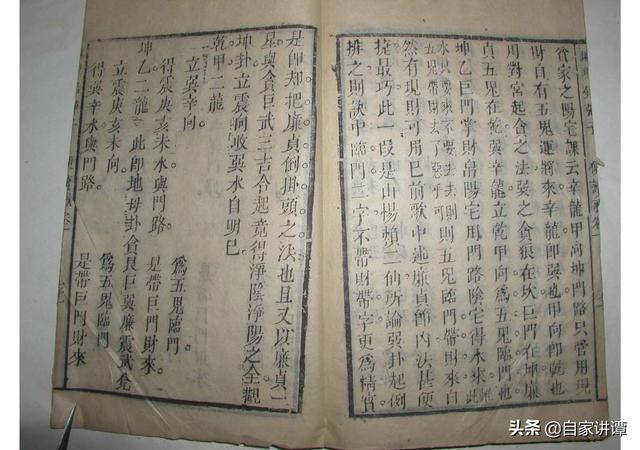 管家之陽宅課云辛龍甲向坤門路只管用現
財自有五鬼運將來辛龍即巽也甲向即乾也
用對宮起貪之法巽之貪狼在坎巨門在坤廉
貞五鬼在乾巽辛龍立乾甲向為五鬼臨門也
坤乙巨門掌財帛陽宅用門路陰宅得水來此
水只要來不要去去則五鬼臨門帶財來白
五鬼帶財去了惡乎可
然有現財可用巳前歌中廉貞節內法甚便
捷最巧此一段是山楊賴二仙所論巽卦起例
排之則訣中臨門二字不帶財帶字更為精實
是即却把廉貞倒掛頭之法也且又以廉貞二
星與貪巨武三吉合起竟得淨陰淨陽之全觀
坤卦立震向收巽水自明巳
乾甲二龍
立巽辛向。 為五鬼臨門。
得震庚亥未水與門路。 是帶巨門財來。
坤乙二龍 此即地母卦貪艮巨巽廉震武兌
立震庚亥未向。 為五鬼臨門
得巽辛水與門路。 是帶巨門財來
头条 @自家讲谭